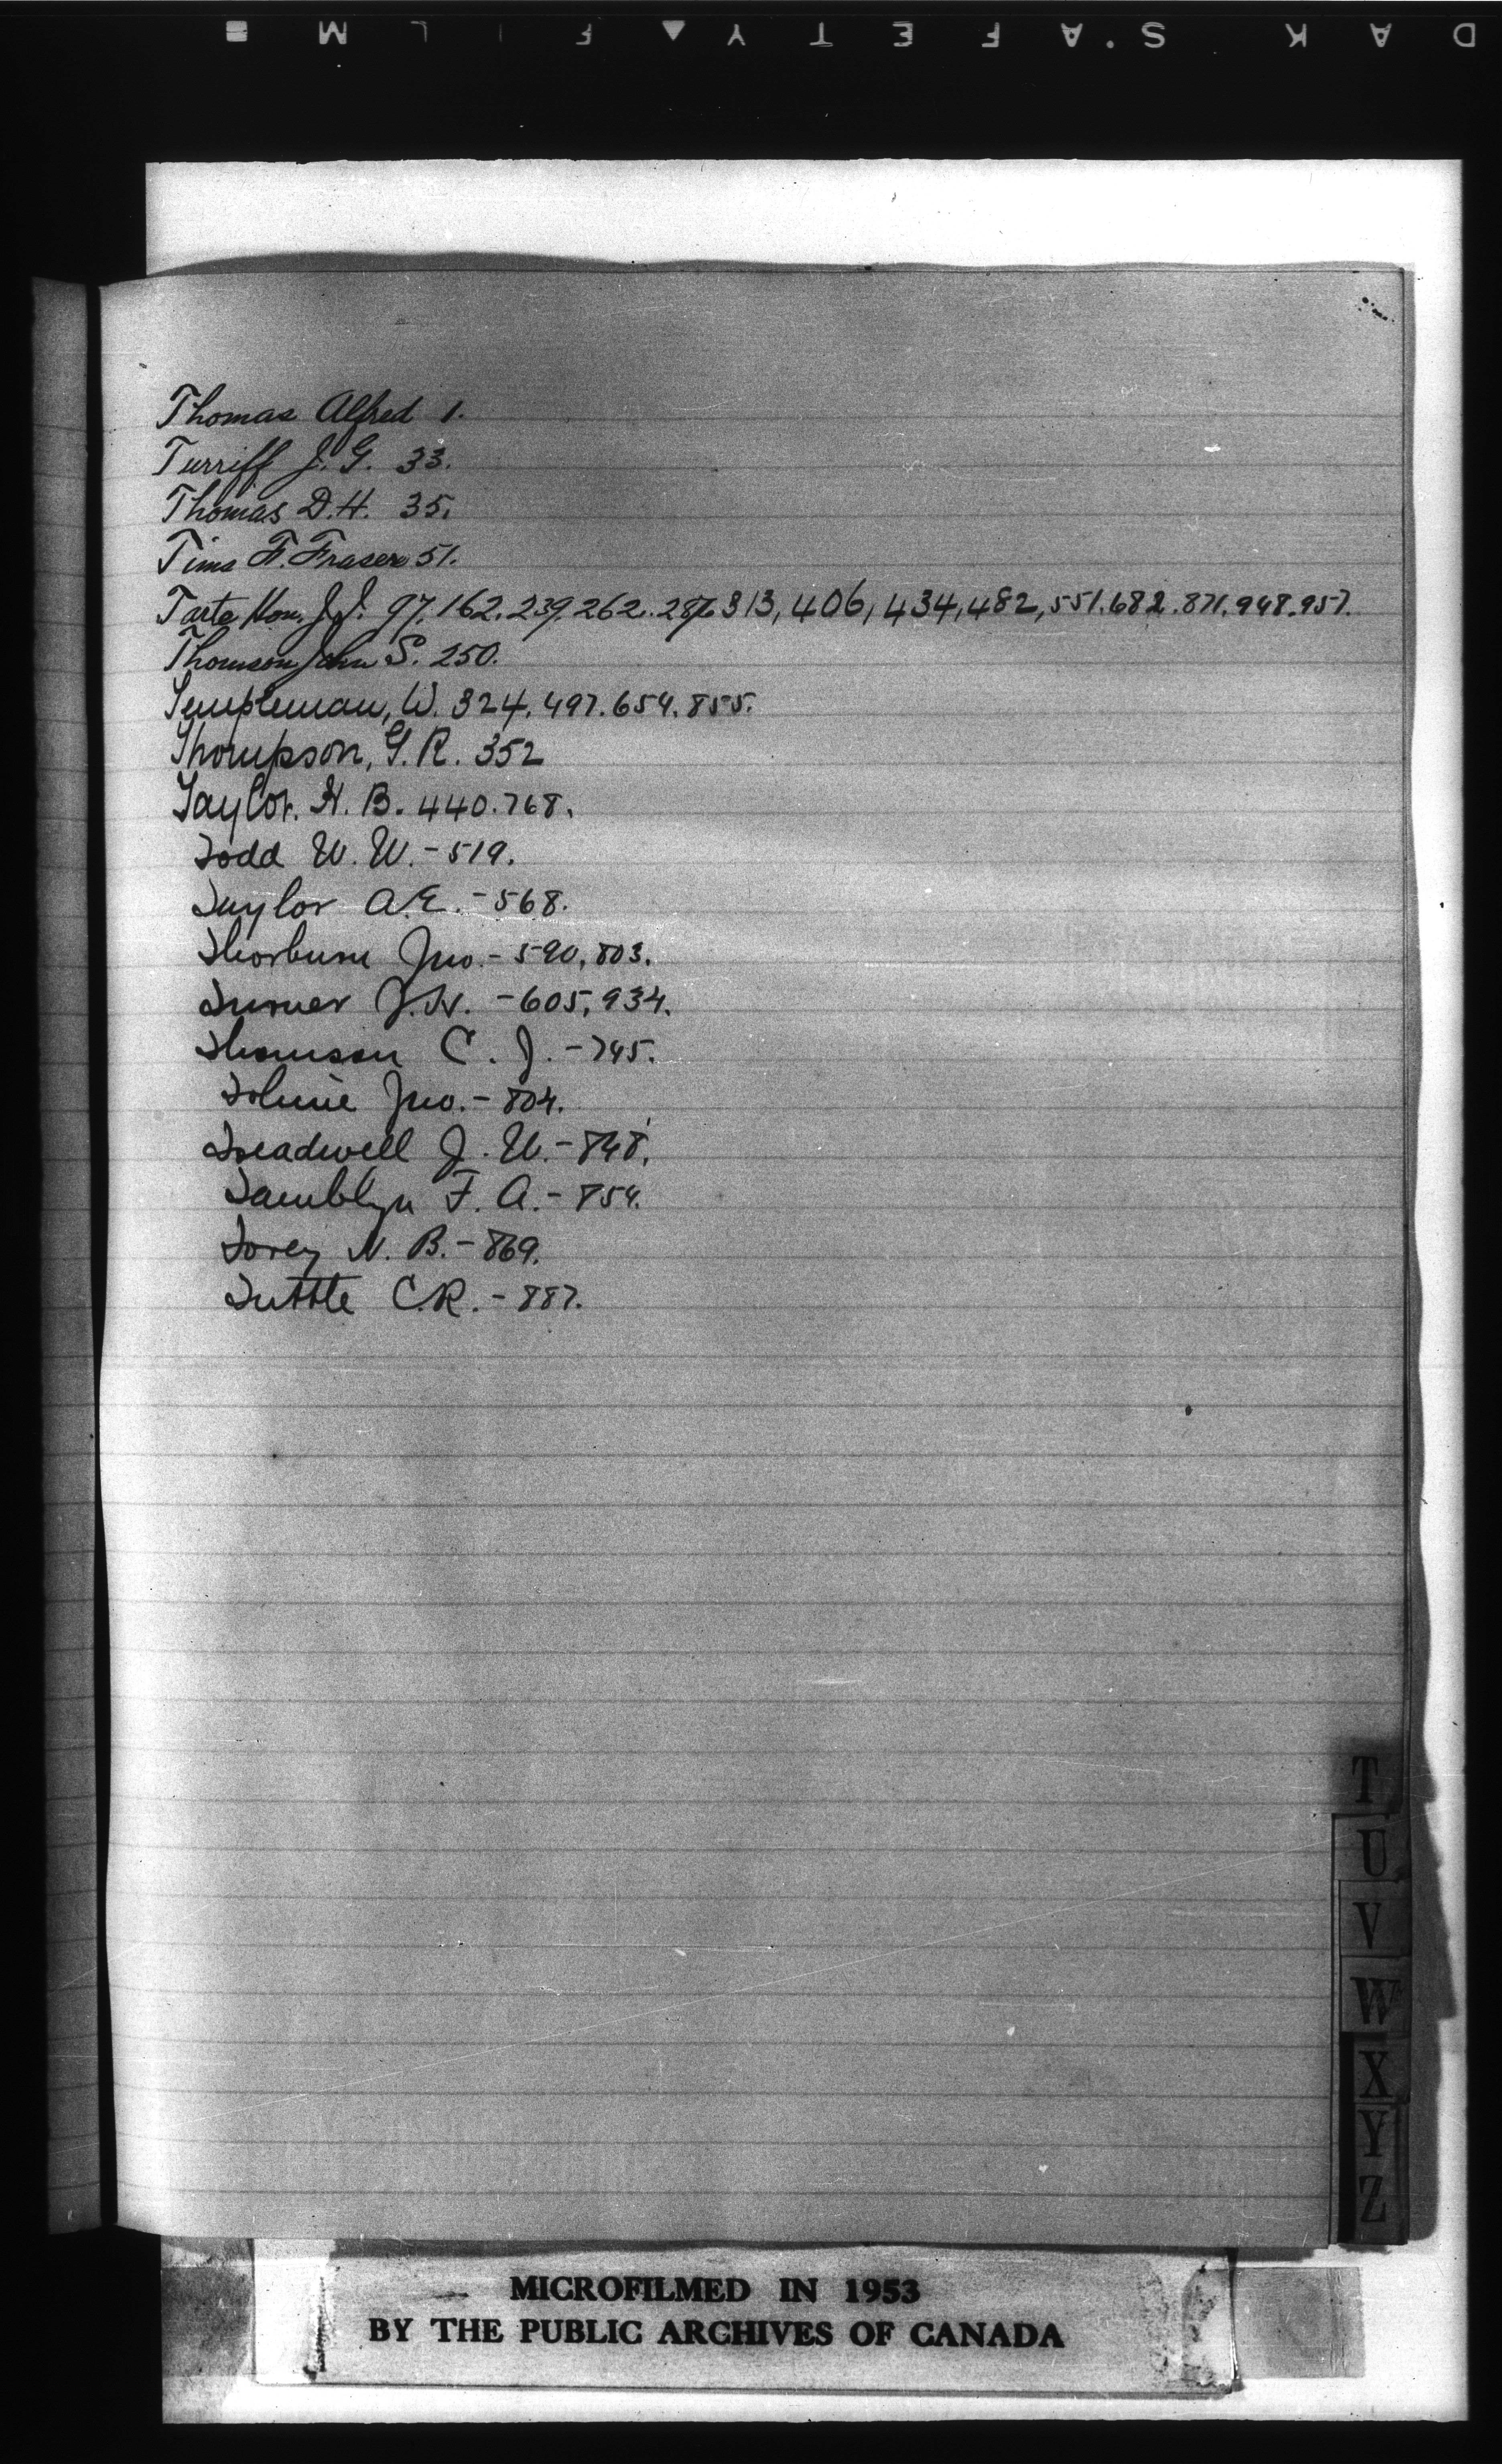 Thomas Alfred 1.
Turriff J. G. 33.
Thomas D. H. 35.
Tims F. Fraser 51.
Tarte Hon. J. I. 97, 162. 239, 262. 313, 406, 434, 482, 551. 682. 871. 948. 957.
Thomson John S. 250.
Templeman, W. 324, 497. 654. 855.
Thompson, G. R. 352
Taylor, H. B. 440. 768.
Todd W. W. - 519.
Taylor A. E. - 568.
Thorburn Jno. - 590, 803.
Turner J. H. - 605, 934.
Thomson C. J. - 745.
Tolmie Jno. - 804.
Treadwell J. W. - 848.
Tamblyn F. A. - 854.
Torey N. B. - 869.
Tuttle C. R. - 887.
T
U
V
W
X
Y
Z
MICROFILMED IN 1953
BY THE PUBLIC ARCHIVES OF CANADA